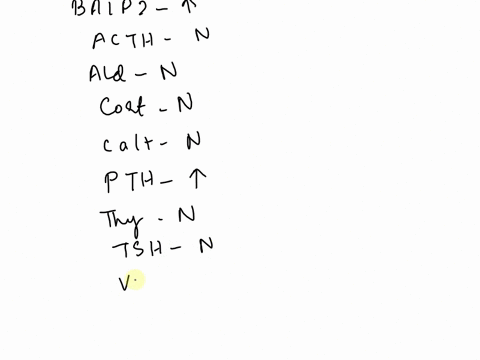 BAIP2 - ↑
ACTH - N
Ald - N
Cort - N
Calt - N
PTH - ↑
Thy - N
TSH - N
V